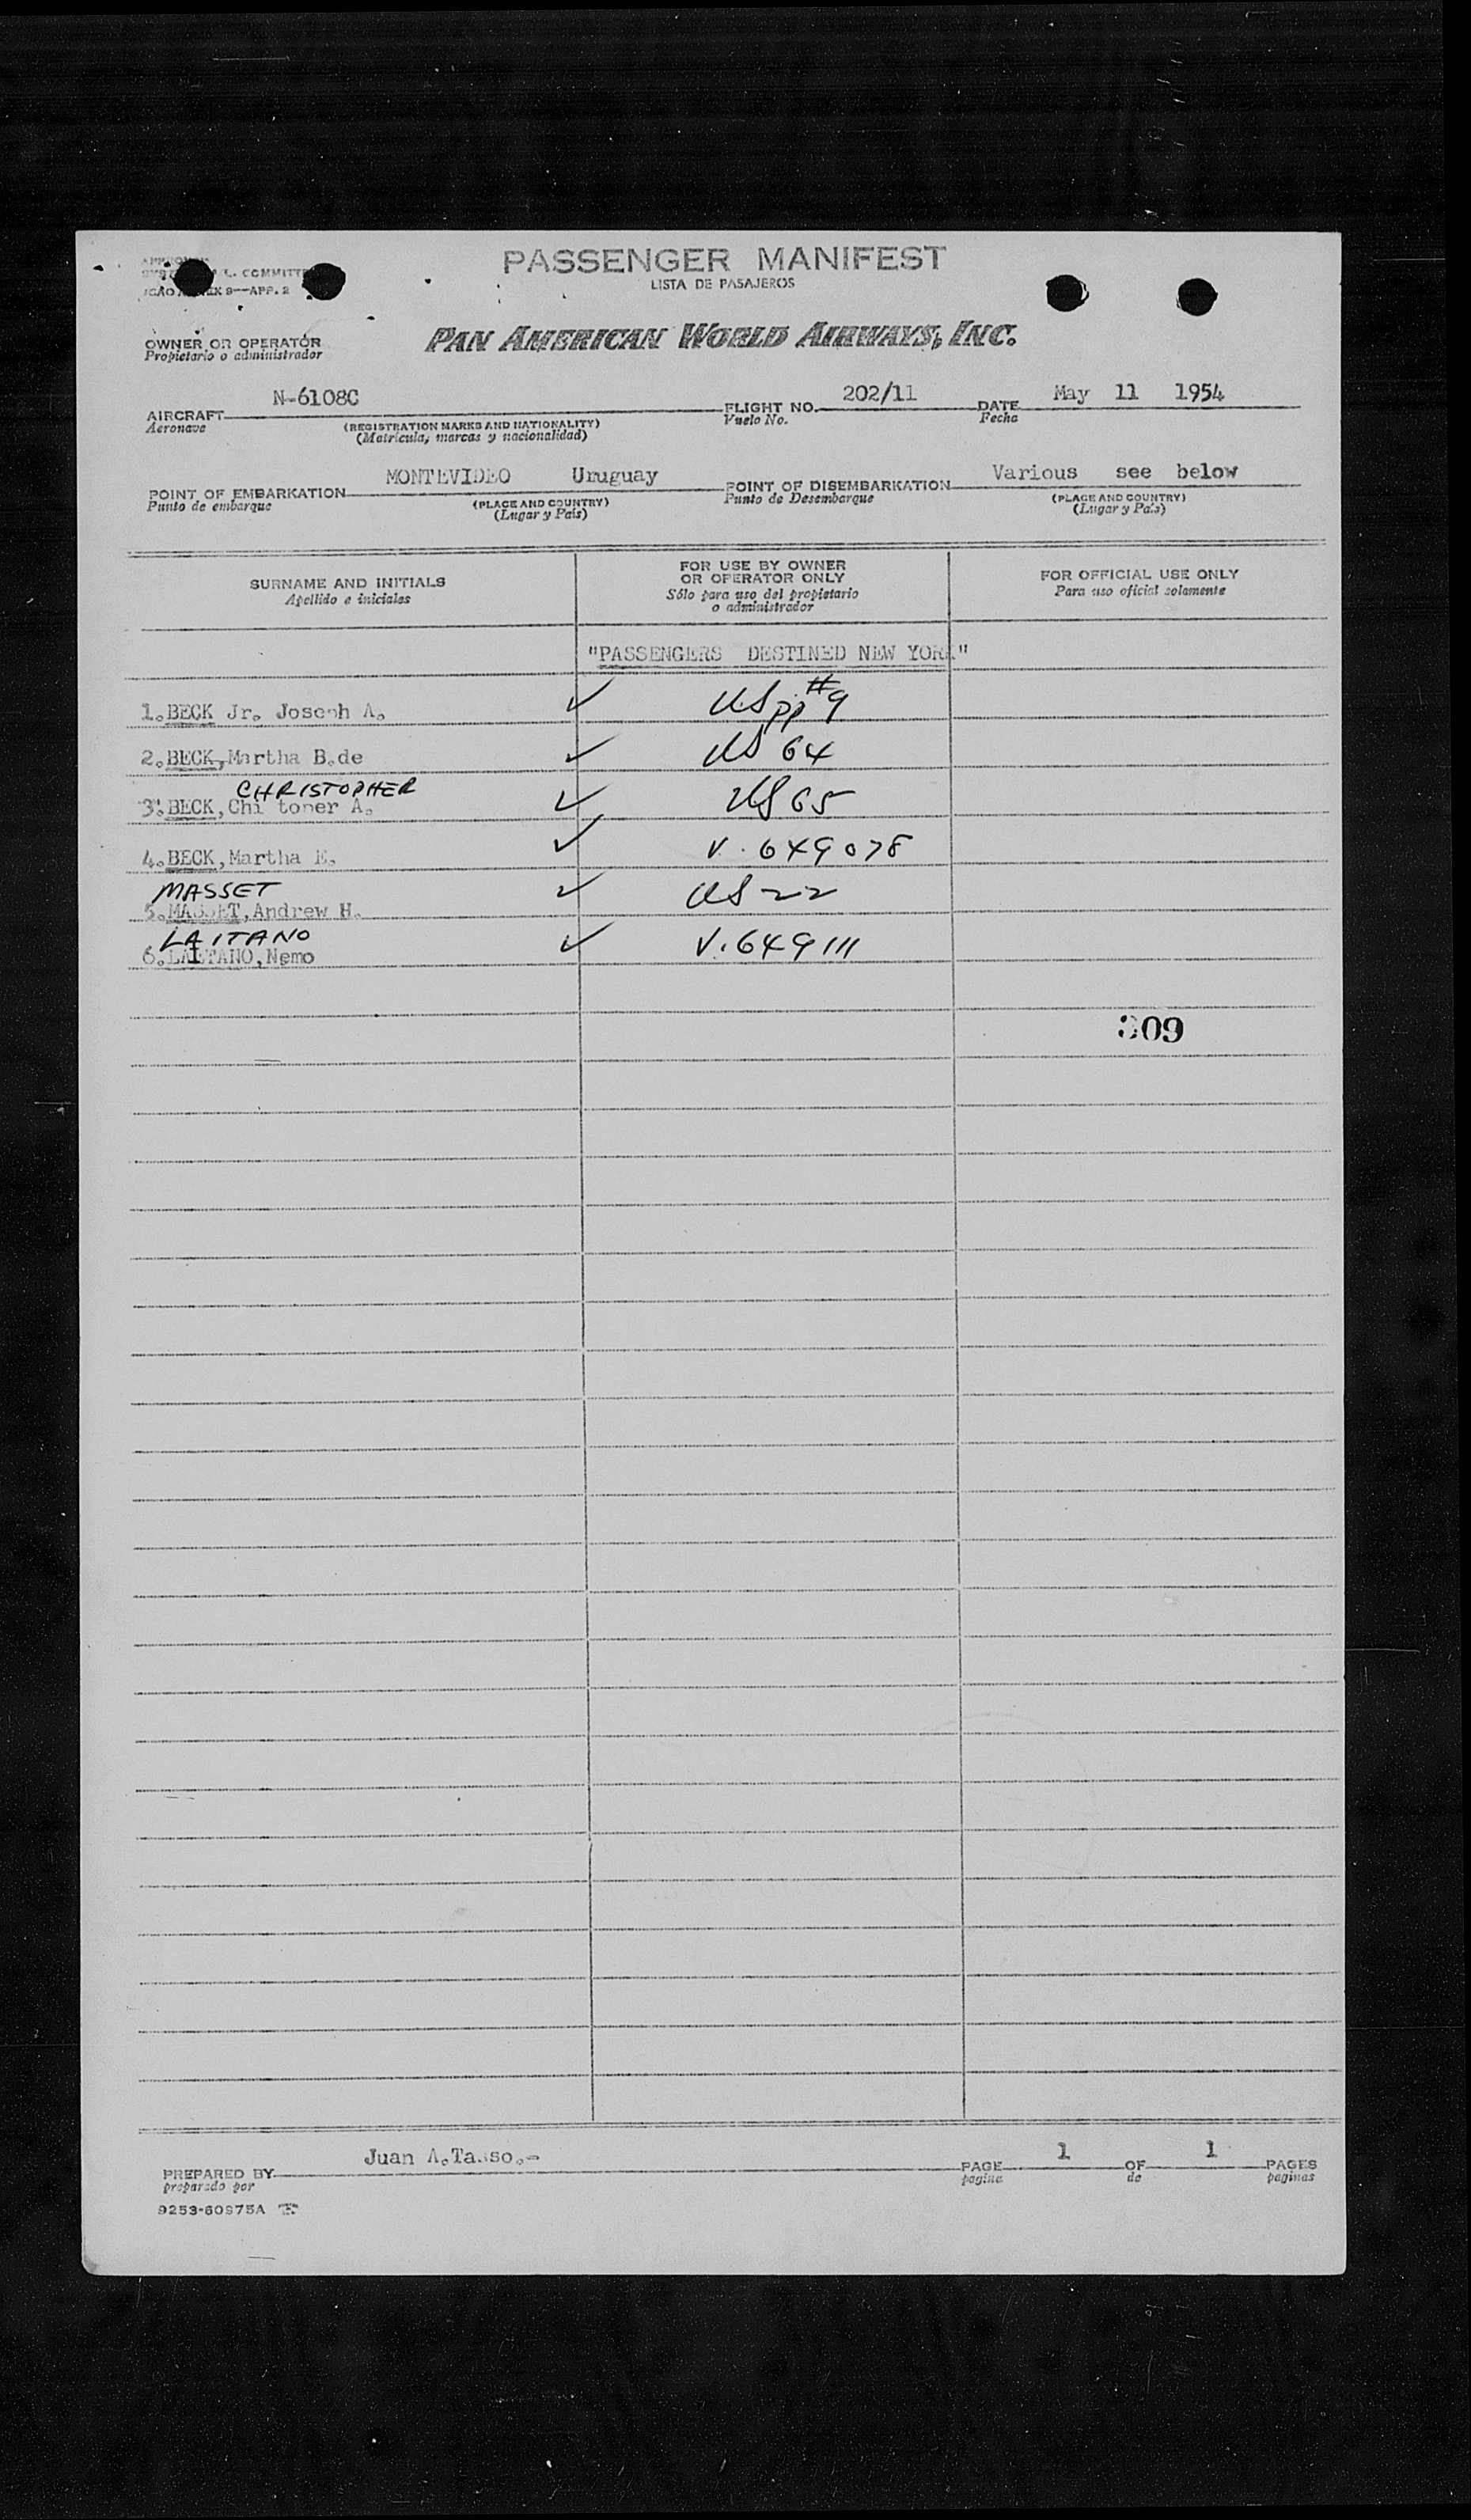 PASSENGER MANIFEST
LISTA DE PASAJEROS
L. COMMITTE
9—APP. 2
OWNER OR OPERATOR
Propietario o administrador
PAN AMERICAN WORLD AIRWAYS, INC.
AIRCRAFT N-6108C FLIGHT NO. 202/11 DATE May 11 1954
Aeronave (REGISTRATION MARKS AND NATIONALITY) Vuelo No. Fecha
(Matrícula, marcas y nacionalidad)
POINT OF EMBARKATION MONTEVIDEO Uruguay POINT OF DISEMBARKATION Various see below
Punto de embarque (PLACE AND COUNTRY) Punto de Desembarque (PLACE AND COUNTRY)
(Lugar y País) (Lugar y País)
SURNAME AND INITIALS
Apellido e iniciales
FOR USE BY OWNER
OR OPERATOR ONLY
Sólo para uso del propietario
o administrador
FOR OFFICIAL USE ONLY
Para uso oficial solamente
"PASSENGERS DESTINED NEW YORK"
1.BECK Jr. Joseph A. ✓ US pp #9
2.BECK,Martha B.de ✓ US 64
CHRISTOPHER
3.BECK, A. ✓ US 65
4.BECK,Martha E. ✓ V. 649078
MASSET
5.MASSET,Andrew H. ✓ US 22
LAITANO
6.LAITANO,Nemo ✓ V.649111
309
PREPARED BY Juan A.Tasso.- PAGE 1 OF 1 PAGES
preparado por pagina de paginas
9253-60975A